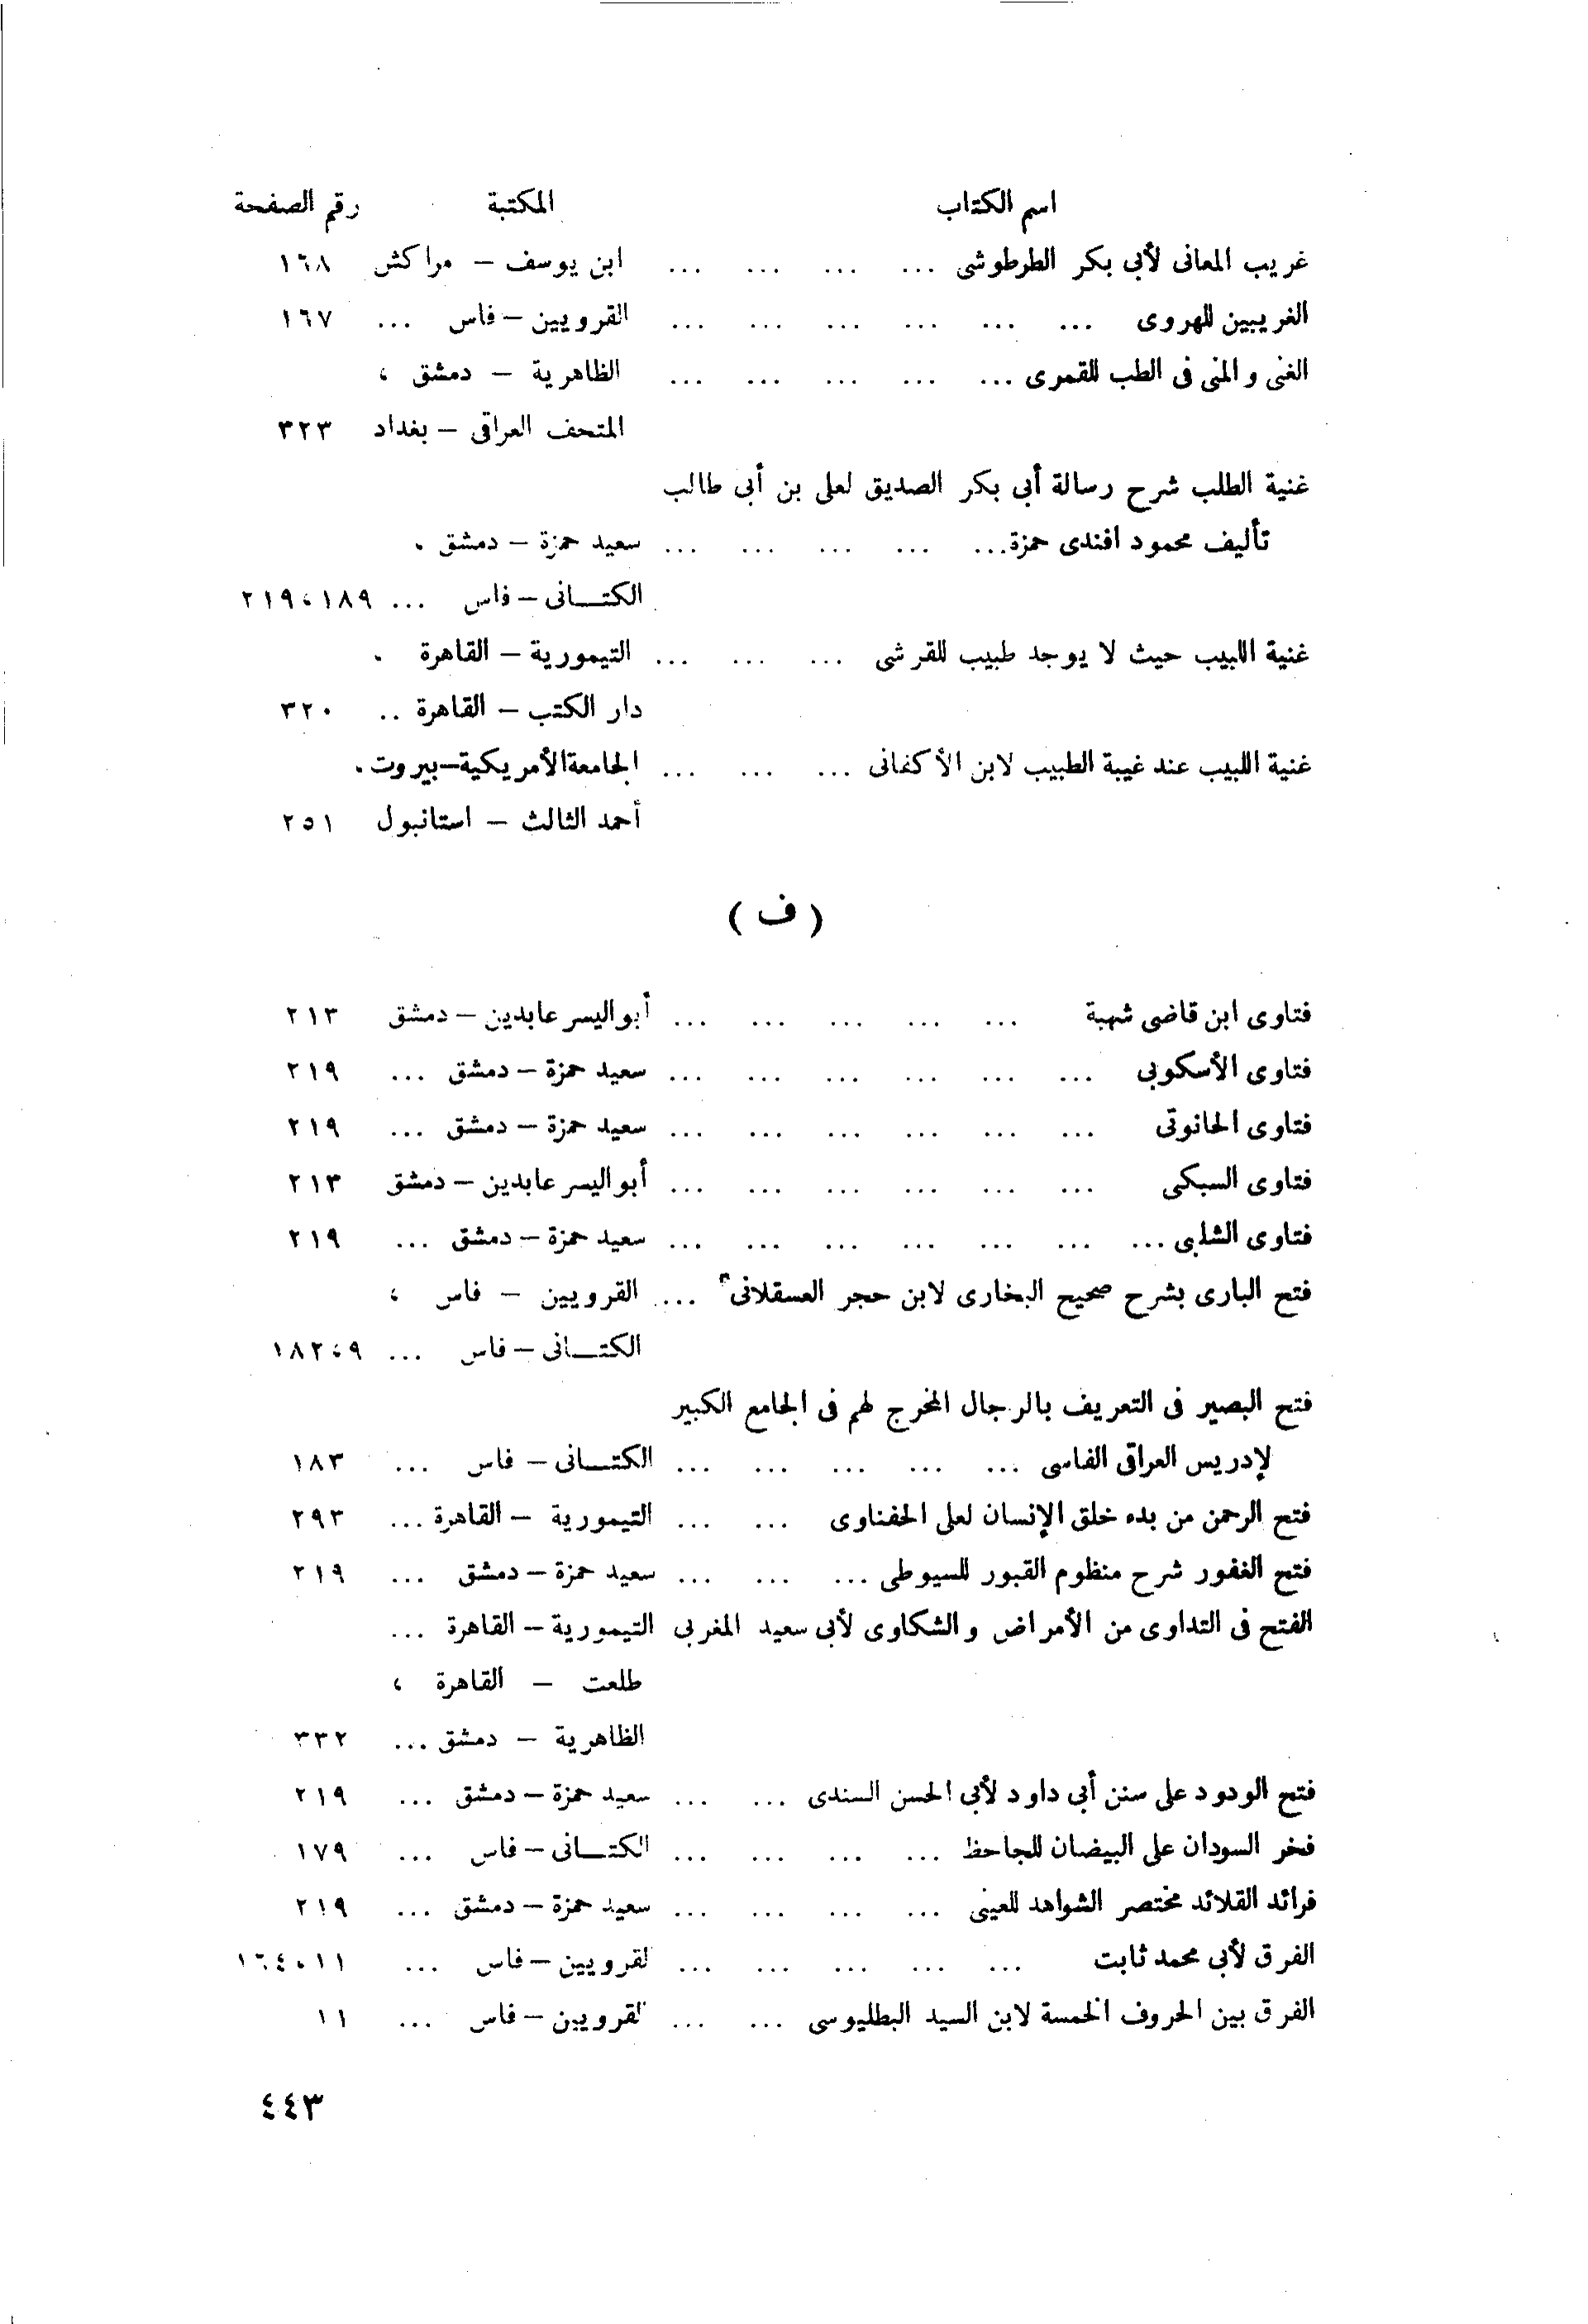 اسم الكتاب المكتبة رقم الصفحة
غريب المعانى لأبى بكر الطرطوشى ... ... ... ... ابن يوسف – مراكش ١٦٨
الغريبين للهروى ... ... ... ... ... ... القرويين – فاس ... ١٦٧
الغنى والمنى فى الطب للقمرى ... ... ... ... ... الظاهرية – دمشق ،
المتحف العراقى – بغداد ٣٢٣
غنية الطلب شرح رسالة أبى بكر الصديق لعلى بن أبى طالب
تأليف محمود افندى حمزة ... ... ... ... ... سعيد حمزة – دمشق .
الكتـــانى – فاس ... ١٨٩ ، ٢١٩
غنية اللبيب حيث لا يوجد طبيب للقرشى ... ... ... التيمورية – القاهرة .
دار الكتب – القاهرة .. ٣٢٠
غنية اللبيب عند غيبة الطبيب لابن الأكفانى ... ... ... الجامعة الأمريكية – بيروت .
أحمد الثالث – استانبول ٢٥١
( ف )
فتاوى ابن قاضى شهبة ... ... ... ... ... أبو اليسر عابدين – دمشق ٢١٣
فتاوى الأسكوبى ... ... ... ... ... ... سعيد حمزة – دمشق ... ٢١٩
فتاوى الحانوتى ... ... ... ... ... ... سعيد حمزة – دمشق ... ٢١٩
فتاوى السبكى ... ... ... ... ... ... أبو اليسر عابدين – دمشق ٢١٣
فتاوى الشلبى ... ... ... ... ... ... ... سعيد حمزة – دمشق ... ٢١٩
فتح البارى بشرح صحيح البخارى لابن حجر العسقلانى ... القرويين – فاس ،
الكتـــانى – فاس ... ٩ ، ١٨٢
فتح البصير فى التعريف بالرجال المخرج لهم فى الجامع الكبير
لإدريس العراقى الفاسى ... ... ... ... ... الكتـــانى – فاس ... ١٨٣
فتح الرحمن من بدء خلق الإنسان لعلى الحفناوى ... ... التيمورية – القاهرة ... ٢٩٣
فتح الغفور شرح منظوم القبور للسيوطى ... ... ... سعيد حمزة – دمشق ... ٢١٩
الفتح فى التداوى من الأمراض والشكاوى لأبى سعيد المغربى التيمورية – القاهرة ...
طلعت – القاهرة ،
الظاهرية – دمشق ... ٣٣٢
فتح الودود على سنن أبى داود لأبى الحسن السندى ... ... سعيد حمزة – دمشق ... ٢١٩
فخر السودان على البيضان للجاحظ ... ... ... ... الكتـــانى – فاس ... ١٧٩
فرائد القلائد مختصر الشواهد للعينى ... ... ... ... سعيد حمزة – دمشق ... ٢١٩
الفرق لأبى محمد ثابت ... ... ... ... ... القرويين – فاس ... ١١ ، ١٦٤
الفرق بين الحروف الخمسة لابن السيد البطليوسى ... ... القرويين – فاس ... ١١
٤٤٣